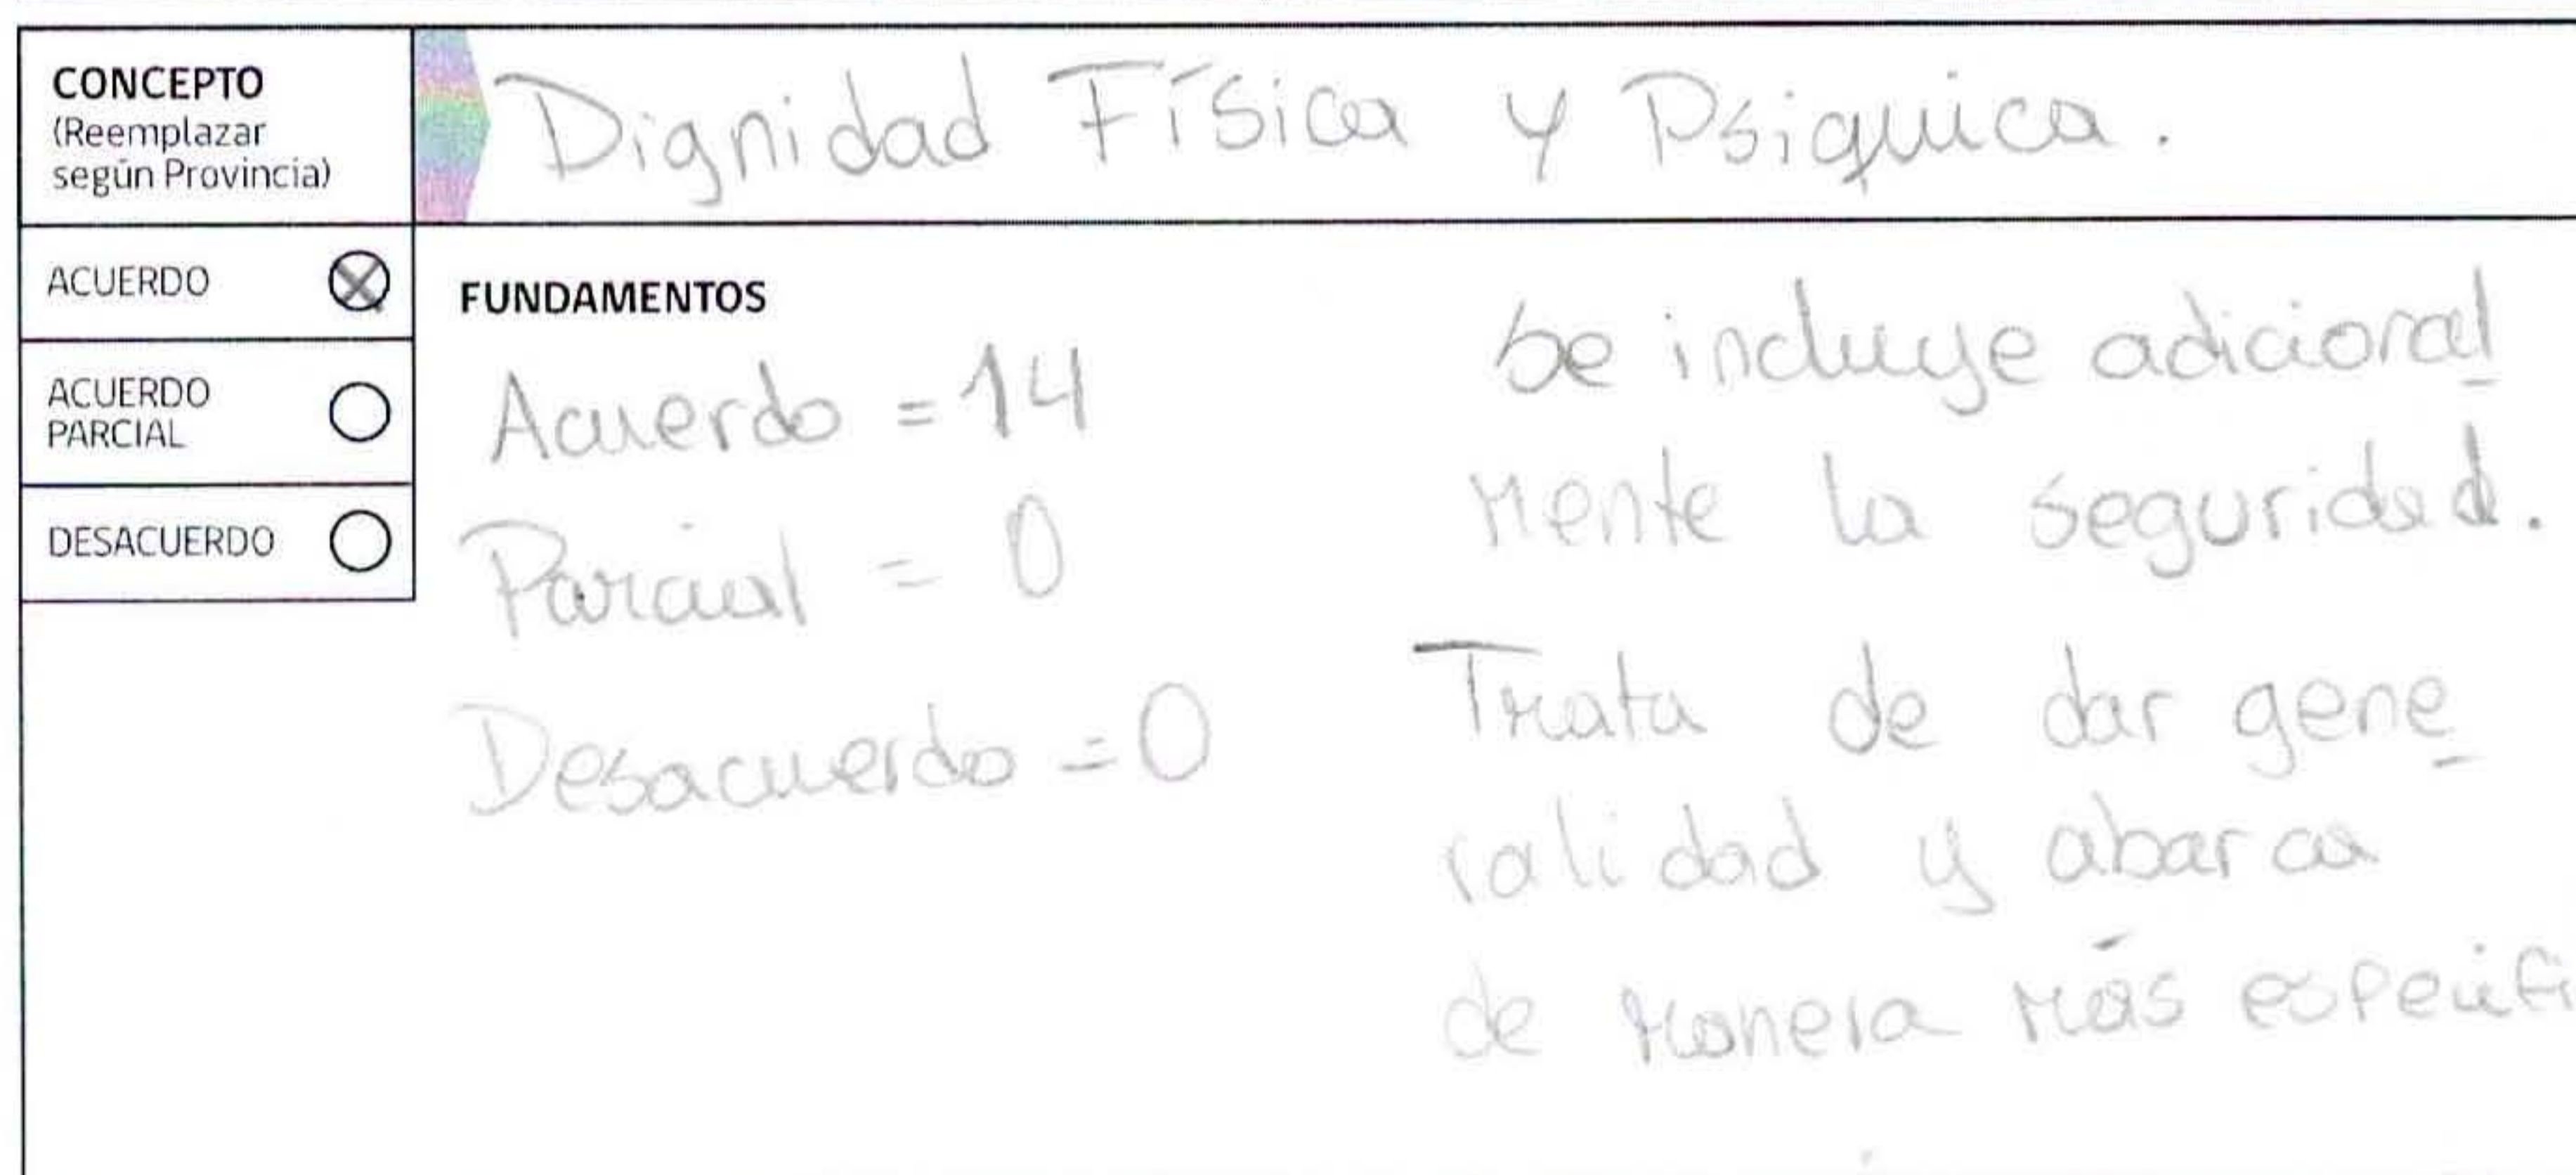 CONCEPTO
(Reemplazar
según Provincia)
Dignidad Física y Psiquica.
ACUERDO
ACUERDO
PARCIAL
DESACUERDO
FUNDAMENTOS
Acuerdo = 14
Parcial = 0
Desacuerdo = 0
Se incluye adicional
mente la seguridad.
Trata de dar gene
ralidad y abarca
de manera más específi